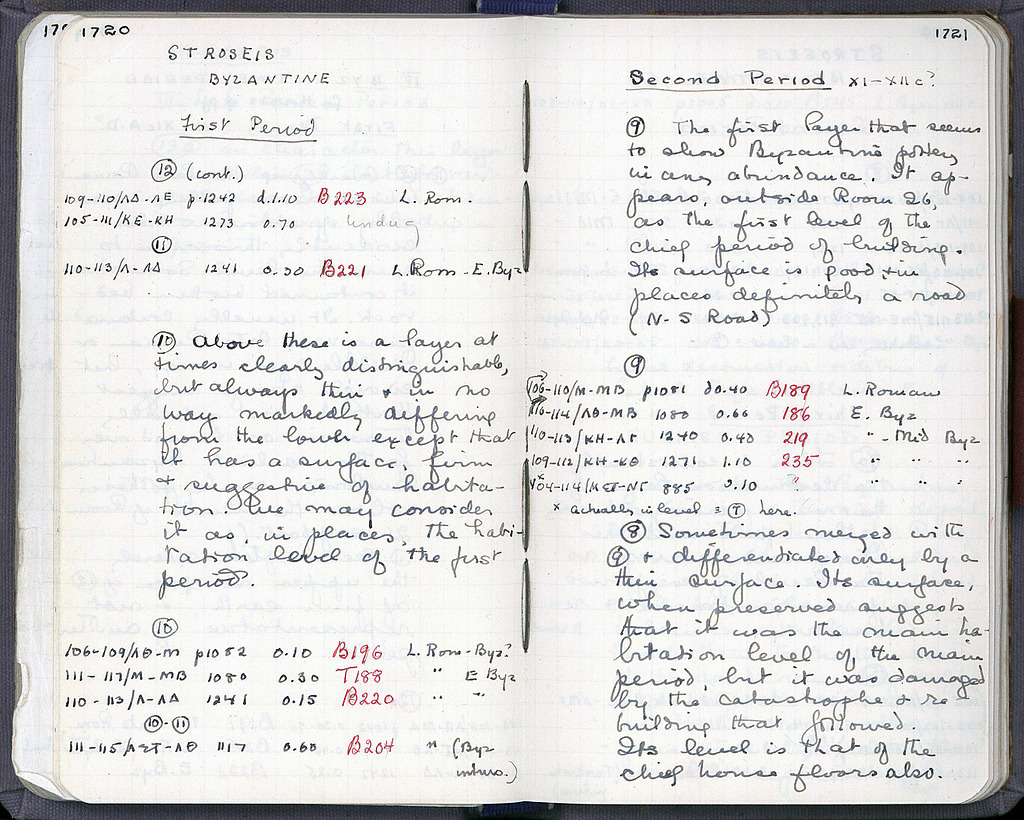 1720
STROSEIS
BYZANTINE
First Period
⑫ (cont.)
109-110/ΛΔ-ΛΕ p.1242 d.1.10 B223 L. Rom.
105-111/ΚΕ-ΚΗ 1273 0.70
⑪
110-113/Λ-ΛΔ 1241 0.30 B221 L. Rom - E. Byz
⑩ Above these is a layer at
times clearly distinguishable,
but always thin & in no
way markedly differing
from the lower, except that
it has a surface, firm
& suggestive of habita-
tion. We may consider
it as, in places, the habi-
tation level of the first
period.
⑩
106-109/ΛΘ-Μ p1082 0.10 B196 L. Rom-Byz?
111-117/Μ-ΜΒ 1080 0.30 T188 " E Byz
110-113/Λ-ΛΔ 1241 0.15 B220 " "
⑩-⑪
111-115/ΛΣΤ-ΛΘ 1117 0.60 B204 " (Byz
intrus.)
1721
Second Period XI-XII c?
⑨ The first layer that seems
to show Byzantine pottery
in any abundance. It ap-
pears, outside Room 26,
as the first level of the
chief period of building.
Its surface is good & in
places definitely a road
(N-S Road)
⑨
106-110/Μ-ΜΒ p1081 d0.40 B189 L. Roman
110-114/ΛΘ-ΜΒ 1080 0.60 186 E. Byz
110-113/ΚΗ-ΛΓ 1240 0.40 219 " - Mid Byz
109-112/ΚΗ-ΚΘ 1271 1.10 235 " " "
*104-114/ΚΣΤ-ΝΓ 885 0.10 " " " "
* actually in level = ⑦ here.
⑧ Sometimes merged with
⑨ & differentiated only by a
thin surface. Its surface,
when preserved suggests
that it was the main ha-
bitation level of the main
period, but it was damaged
by the catastrophe & re
building that followed.
Its level is that of the
chief house floors also.